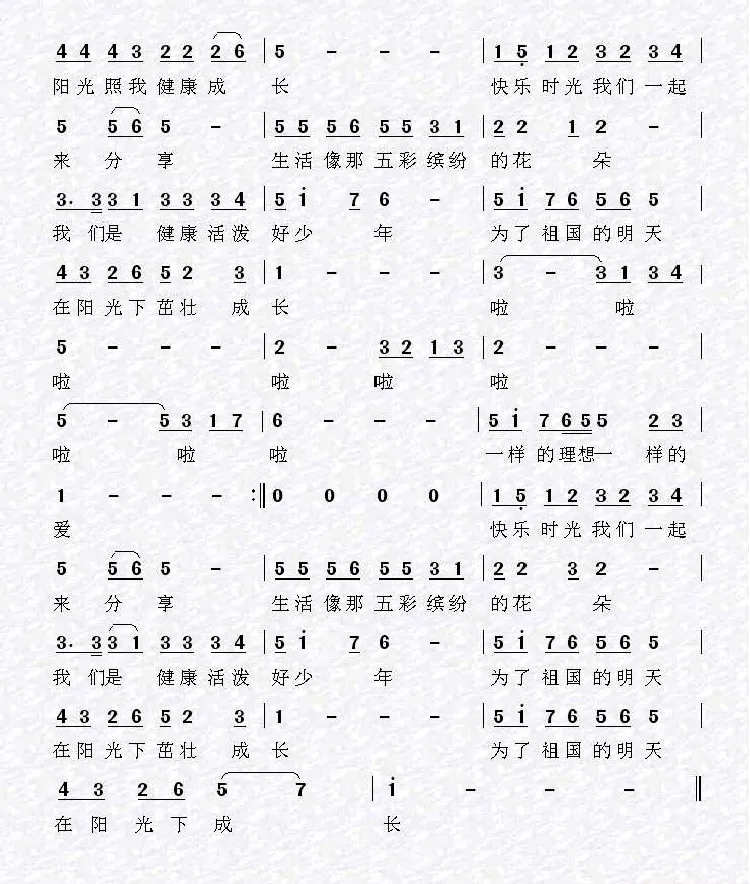 4 4 4 3 2 2 2 6 | 5 - - - | 1 5 1 2 3 2 3 4 |
阳光照我健康成 长 快乐时光我们一起
5 5 6 5 - | 5 5 5 6 5 5 3 1 | 2 2 1 2 - |
来 分 享 生活像那五彩缤纷 的花 朵
3· 3 3 1 3 3 3 4 | 5 i 7 6 - | 5 i 7 6 5 6 5 |
我 们是 健康活泼 好少 年 为了祖国的明天
4 3 2 6 5 2 3 | 1 - - - | 3 - 3 1 3 4 |
在阳光下茁壮 成 长 啦 啦
5 - - - | 2 - 3 2 1 3 | 2 - - - |
啦 啦 啦 啦 啦
5 - 5 3 1 7 | 6 - - - | 5 i 7 6 5 5 2 3 |
啦 啦 啦 一样的理想一 样的
1 - - - :‖ 0 0 0 0 | 1 5 1 2 3 2 3 4 |
爱 快乐时光我们一起
5 5 6 5 - | 5 5 5 6 5 5 3 1 | 2 2 3 2 - |
来 分 享 生活像那五彩缤纷 的花 朵
3· 3 3 1 3 3 3 4 | 5 i 7 6 - | 5 i 7 6 5 6 5 |
我 们是 健康活泼 好少 年 为了祖国的明天
4 3 2 6 5 2 3 | 1 - - - | 5 i 7 6 5 6 5 |
在阳光下茁壮 成 长 为了祖国的明天
4 3 2 6 5 7 | i - - - ‖
在阳光下成 长